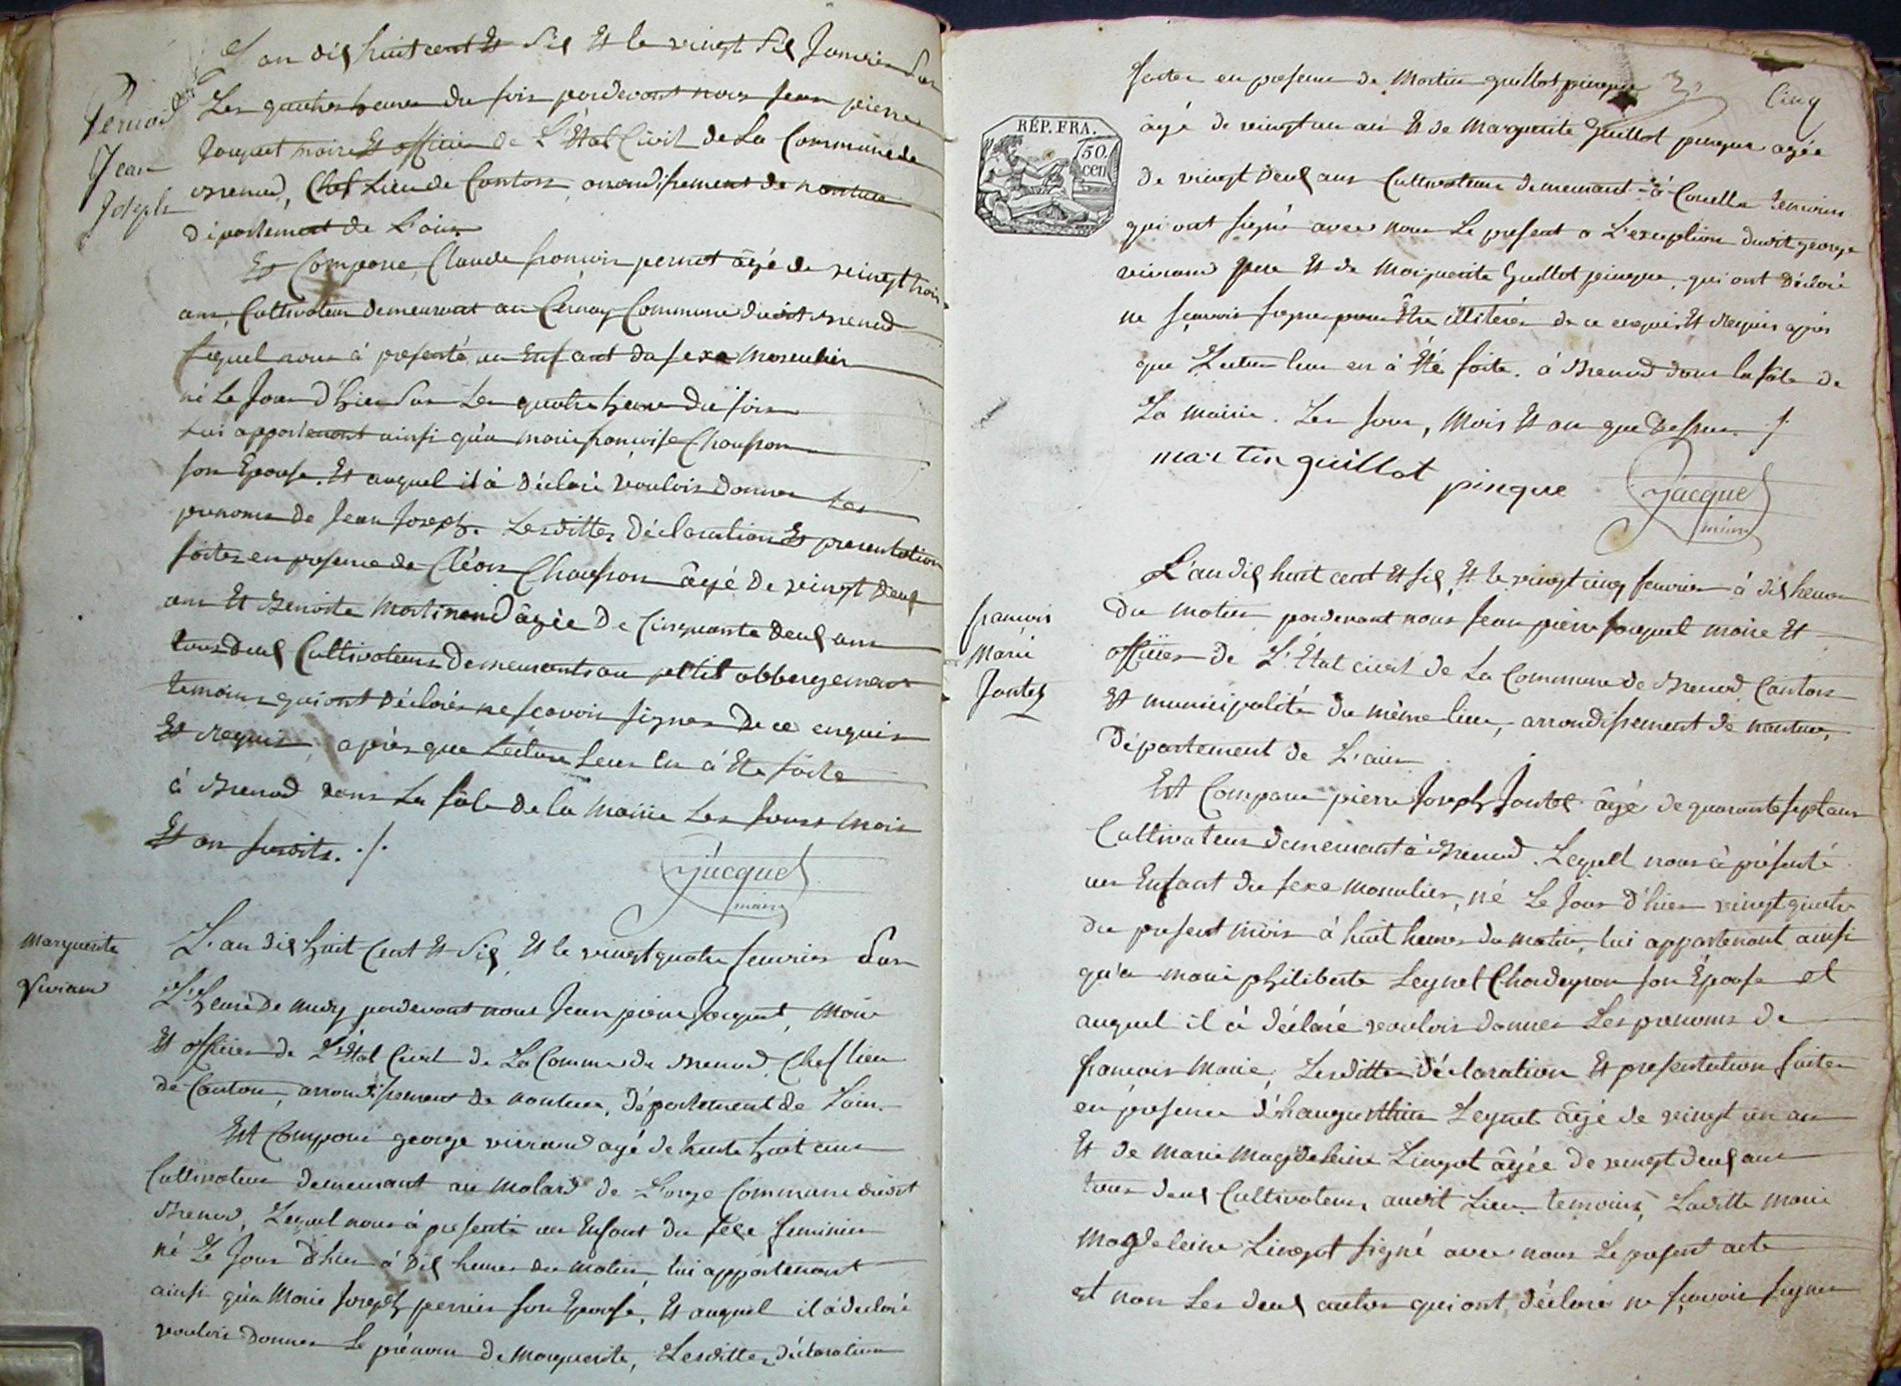 L'an dix huit cent Et Six Et le vingt Six Janvier Sur
Les quatres heures du soir pardevant nous Jean pierre
Jacquet maire Et officier de L'Etat Civil de La Commune de
Brenod, Chef Lieu de Canton, arrondissement de nantua
département de L'ain
Pernod
Jean
Joseph
Est Comparu Claude françois pernot âgé de vingt trois
ans, Cultivateur demeurant au Cernay Commune dudit Brenod
Lequel nous à presenté un Enfant du sexe Masculin
né Le Jour d'hier Sur Les quatre heures du soir
Lui appartenant ainsi qu'a marie françoise Chausson
son Epouse. Et auquel il à déclaré vouloir donner Les
prenoms de Jean Joseph. Lesdittes Déclaration Et presentation
faites en presence de Cléon Chausson âgé de vingt deux
ans Et Benoite Martinand âgée De Cinquante deux ans
tous deux Cultivateurs Demeurants au petit abbergement
temoins qui ont déclarés ne scavoir signer De ce enquis
Et requis, après que Lecture Leur En à Eté faite
à Brenod dans La sale de la Mairie Les Jours Mois
Et an susdits. ./.
Jacquet
maire
Marguerite
Viviand
L'an dix huit Cent Et Six, Et le vingt quatre fevrier Sur
L'heure de midy pardevant nous Jean pierre Jacquet, Maire
Et officier de L'Etat Civil de La Commune de Brenod, Chef lieu
de Canton, arrondissement de nantua, département de L'ain.
Est Comparu george viviand agé de trente huit ans
Cultivateur demeurant au Molard de Lorge Commune dudit
Brenod, Lequel nous à presenté un Enfant du sexe feminin
né Le Jour d'hier à dix heures du matin, lui appartenant
ainsi qu'a Marie Joseph perrier son Epouse, Et auquel il à déclaré
vouloir donner Le prénom de Marguerite, Lesdittes déclaration
Cinq
RÉP. FRA.
50.
cen
faites en presence de Martin guillot pinque
âgé de vingt un ans Et de Marguerite Guillot pinque agée
de vingt deux ans Cultivateurs demeurant à Corcelle temoins
qui ont signé avec nous Le present a L'exception dudit george
viviand pere Et de Marguerite Guillot pinque, qui ont déclaré
ne sçavoir signer pour Être illitérés de ce enquis Et requis après
que Lecture leur en à Été faite. à Brenod dans la sale de
La Mairie. Les Jour, Mois Et an que dessus. /.
martin guillot pinque
Jacquet
maire
françois
Marie
Jantet
L'an dix huit cent Et six, Et le vingt cinq fevrier à dix heures
Du matin pardevant nous Jean pierre Jacquet maire Et
officier de L'État civil de La Commune de Brenod Canton
Et municipalité du même lieu, arrondissement de nantua,
Département de L'ain
Est Comparu pierre Joseph Jantet âgé de quarante sept ans
Cultivateur demeurant à Brenod. Lequel nous à présenté
un Enfant du sexe Masculin, né Le Jour d'hier vingt quatre
du present mois à huit heures du matin, lui appartenant ainsi
qu'a marie philiberte Leynet Chardeyron son Épouse et
auquel il à déclaré vouloir donner Les prenoms de
françois Marie, Lesdittes déclaration Et presentation faites
en presence d'haugustin Leynet âgé de vingt un an
Et de marie Magdeleine Lingot âgée de vingt deux ans
tous deux Cultivateurs audit Lieu temoins, Laditte Marie
Magdeleine Lingot signé avec nous Le present acte
et non Les deux autres qui ont déclaré ne sçavoir signer